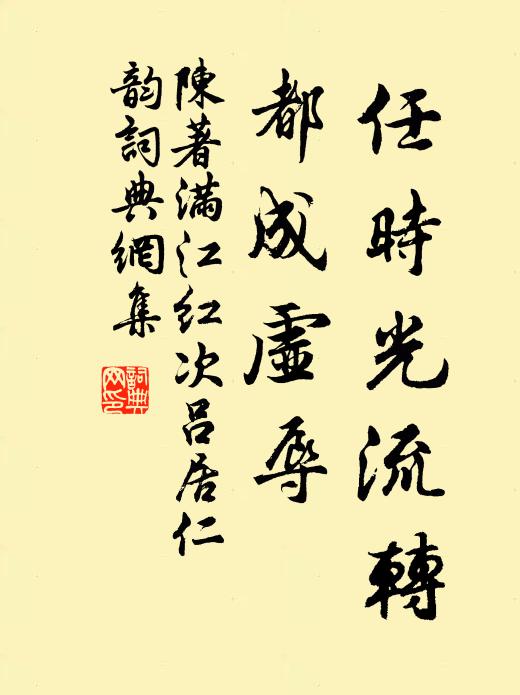 任時光流轉
都成虛辱
陳著滿江紅次呂居仁
韵詞典網集
詞典
网印